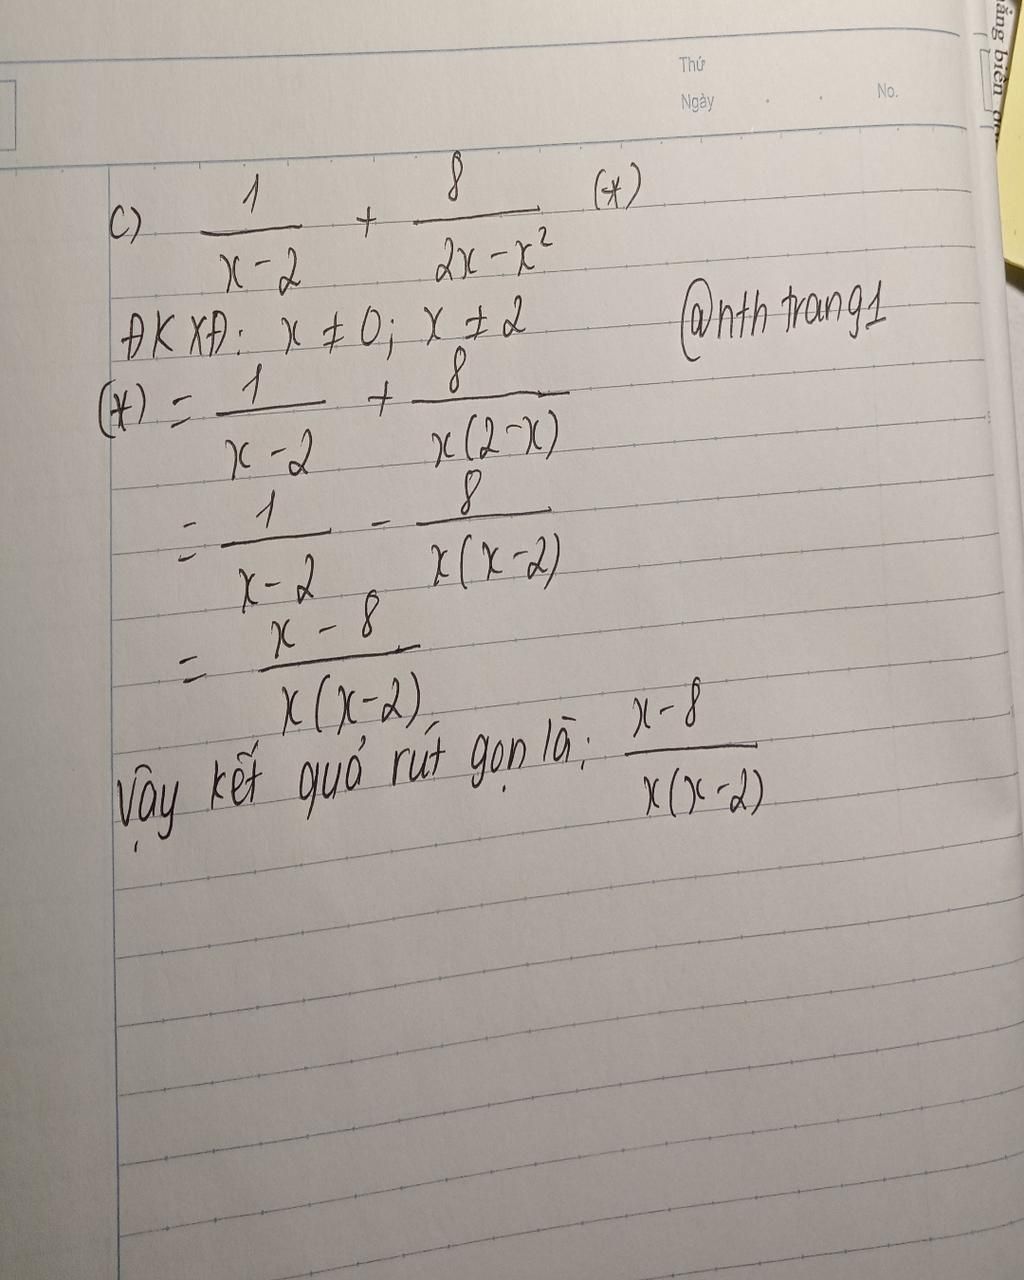 Thứ
Ngày . . No.
ẳng biến
c) 1/(x-2) + 8/(2x-x²) (*)
ĐKXĐ: x ≠ 0; x ≠ 2
@nthtrang1
(*) = 1/(x-2) + 8/(x(2-x))
= 1/(x-2) - 8/(x(x-2))
= (x-8)/(x(x-2))
Vậy kết quả rút gọn là: (x-8)/(x(x-2))